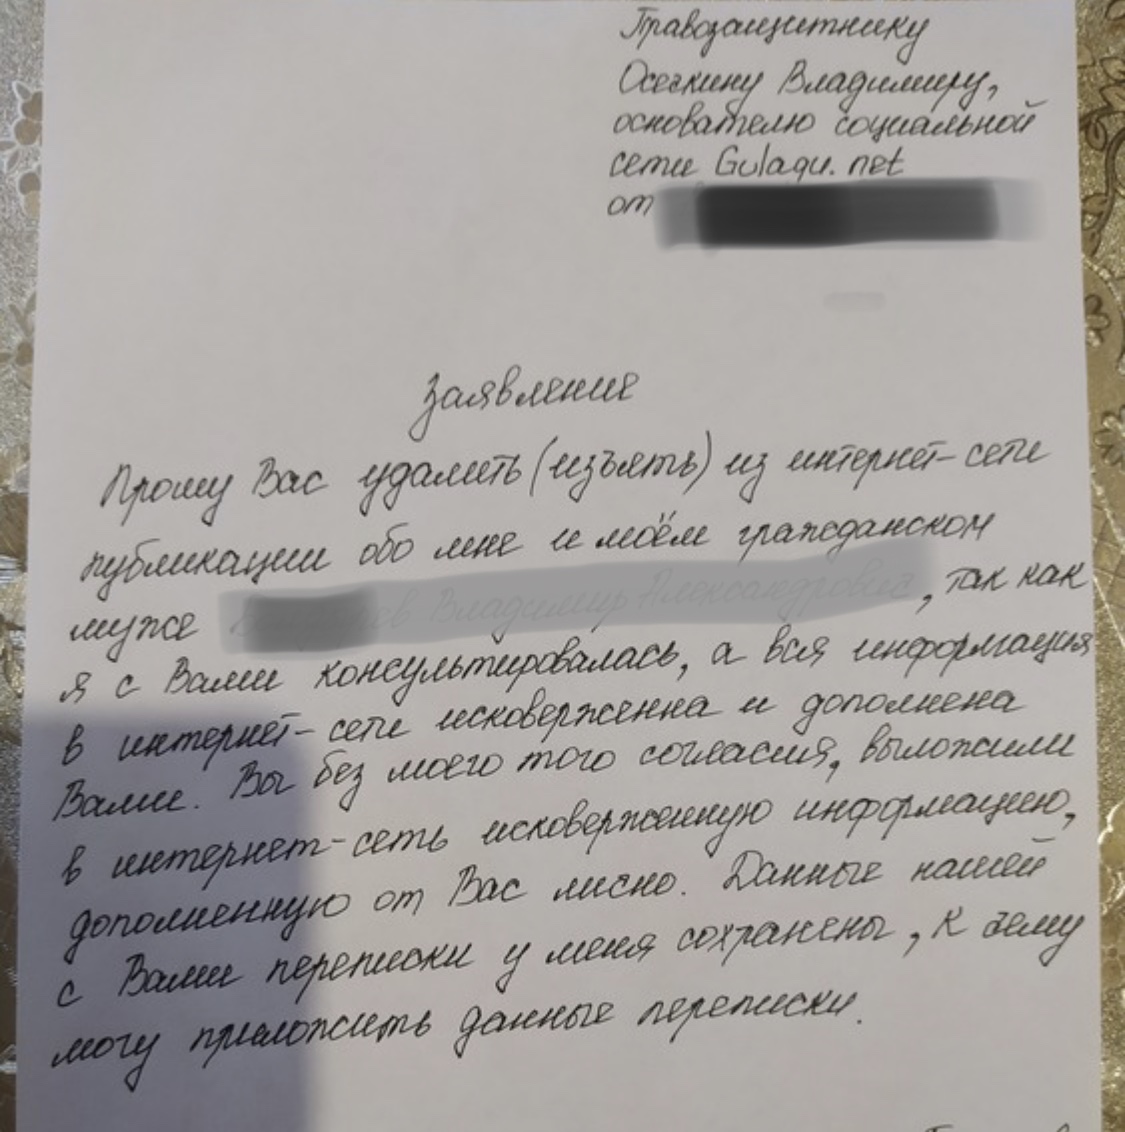 Правозащитнику
Осечкину Владимиру,
основателю социальной
сети Gulagu.net
от
Заявление
Прошу Вас удалить (изъять) из интернет-сети
публикации обо мне и моём гражданском
муже , так как
я с Вами консультировалась, а вся информация
в интернет-сети исковерженна и дополнена
Вами. Вы без моего того согласия, выложили
в интернет-сеть исковерженную информацию,
дополненную от Вас лично. Данные нашей
с Вами переписки у меня сохранены, к чему
могу приложить данные переписки.